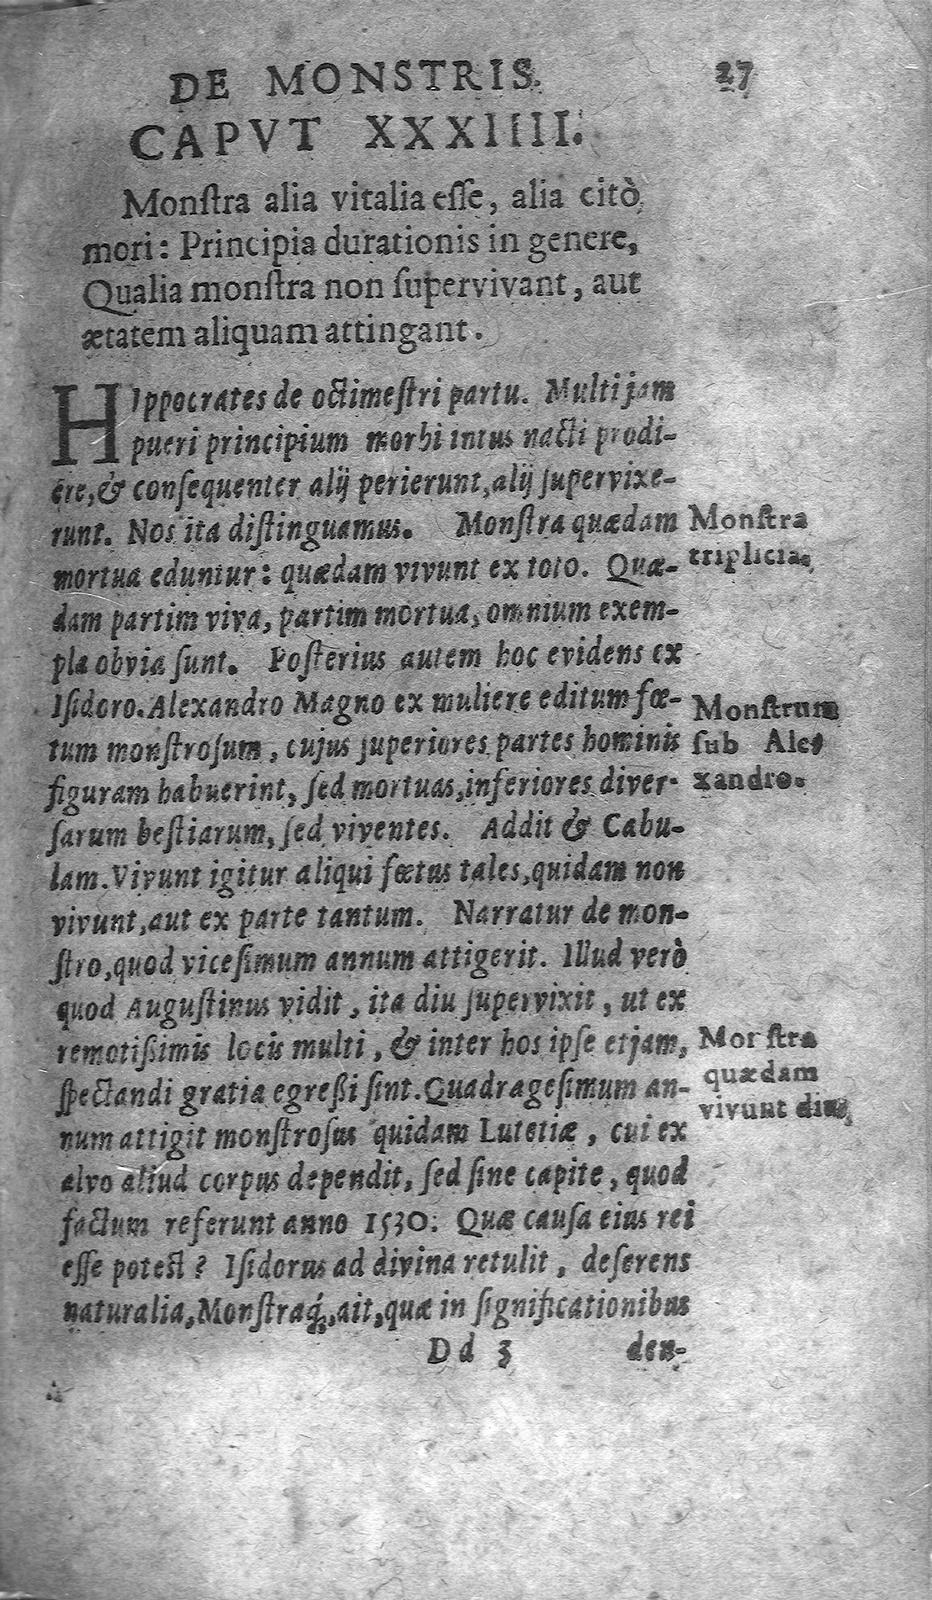 DE MONSTRIS. 27
CAPVT XXXIIII.
Monſtra alia vitalia eſſe, alia citò
mori: Principia durationis in genere,
Qualia monſtra non ſupervivant, aut
ætatem aliquam attingant.
HIppocrates de octimeſtri partu. Multi jam
pueri principium morbi intus nacti prodi-
ére, & conſequenter alij perierunt, alij ſupervixe-
runt. Nos ita diſtinguamus. Monſtra quædam
mortua eduntur: quædam vivunt ex toto. Quæ-
dam partim viva, partim mortua, omnium exem-
pla obvia ſunt. Poſterius autem hoc evidens ex
Iſidoro. Alexandro Magno ex muliere editum fœ-
tum monſtroſum, cujus ſuperiores partes hominis
figuram habuerint, ſed mortuas, inferiores diver-
ſarum beſtiarum, ſed viventes. Addit & Cabu-
lam. Vivunt igitur aliqui fœtus tales, quidam non
vivunt, aut ex parte tantum. Narratur de mon-
ſtro, quod viceſimum annum attigerit. Illud verò
quod Auguſtinus vidit, ita diu ſupervixit, ut ex
remotiſſimis locis multi, & inter hos ipſe etjam,
ſpectandi gratia egreſſi ſint. Quadrageſimum an-
num attigit monſtroſus quidam Lutetiæ, cui ex
alvo aliud corpus dependit, ſed ſine capite, quod
factum referunt anno 1530. Quæ cauſa eius rei
eſſe poteſt? Iſidorus ad divina retulit, deſerens
naturalia, Monſtraq́, ait, quæ in ſignificationibus
Dd 3 den-
Monſtra
triplicia.
Monſtrum
ſub Ale-
xandro.
Monſtra
quædam
vivunt diu.